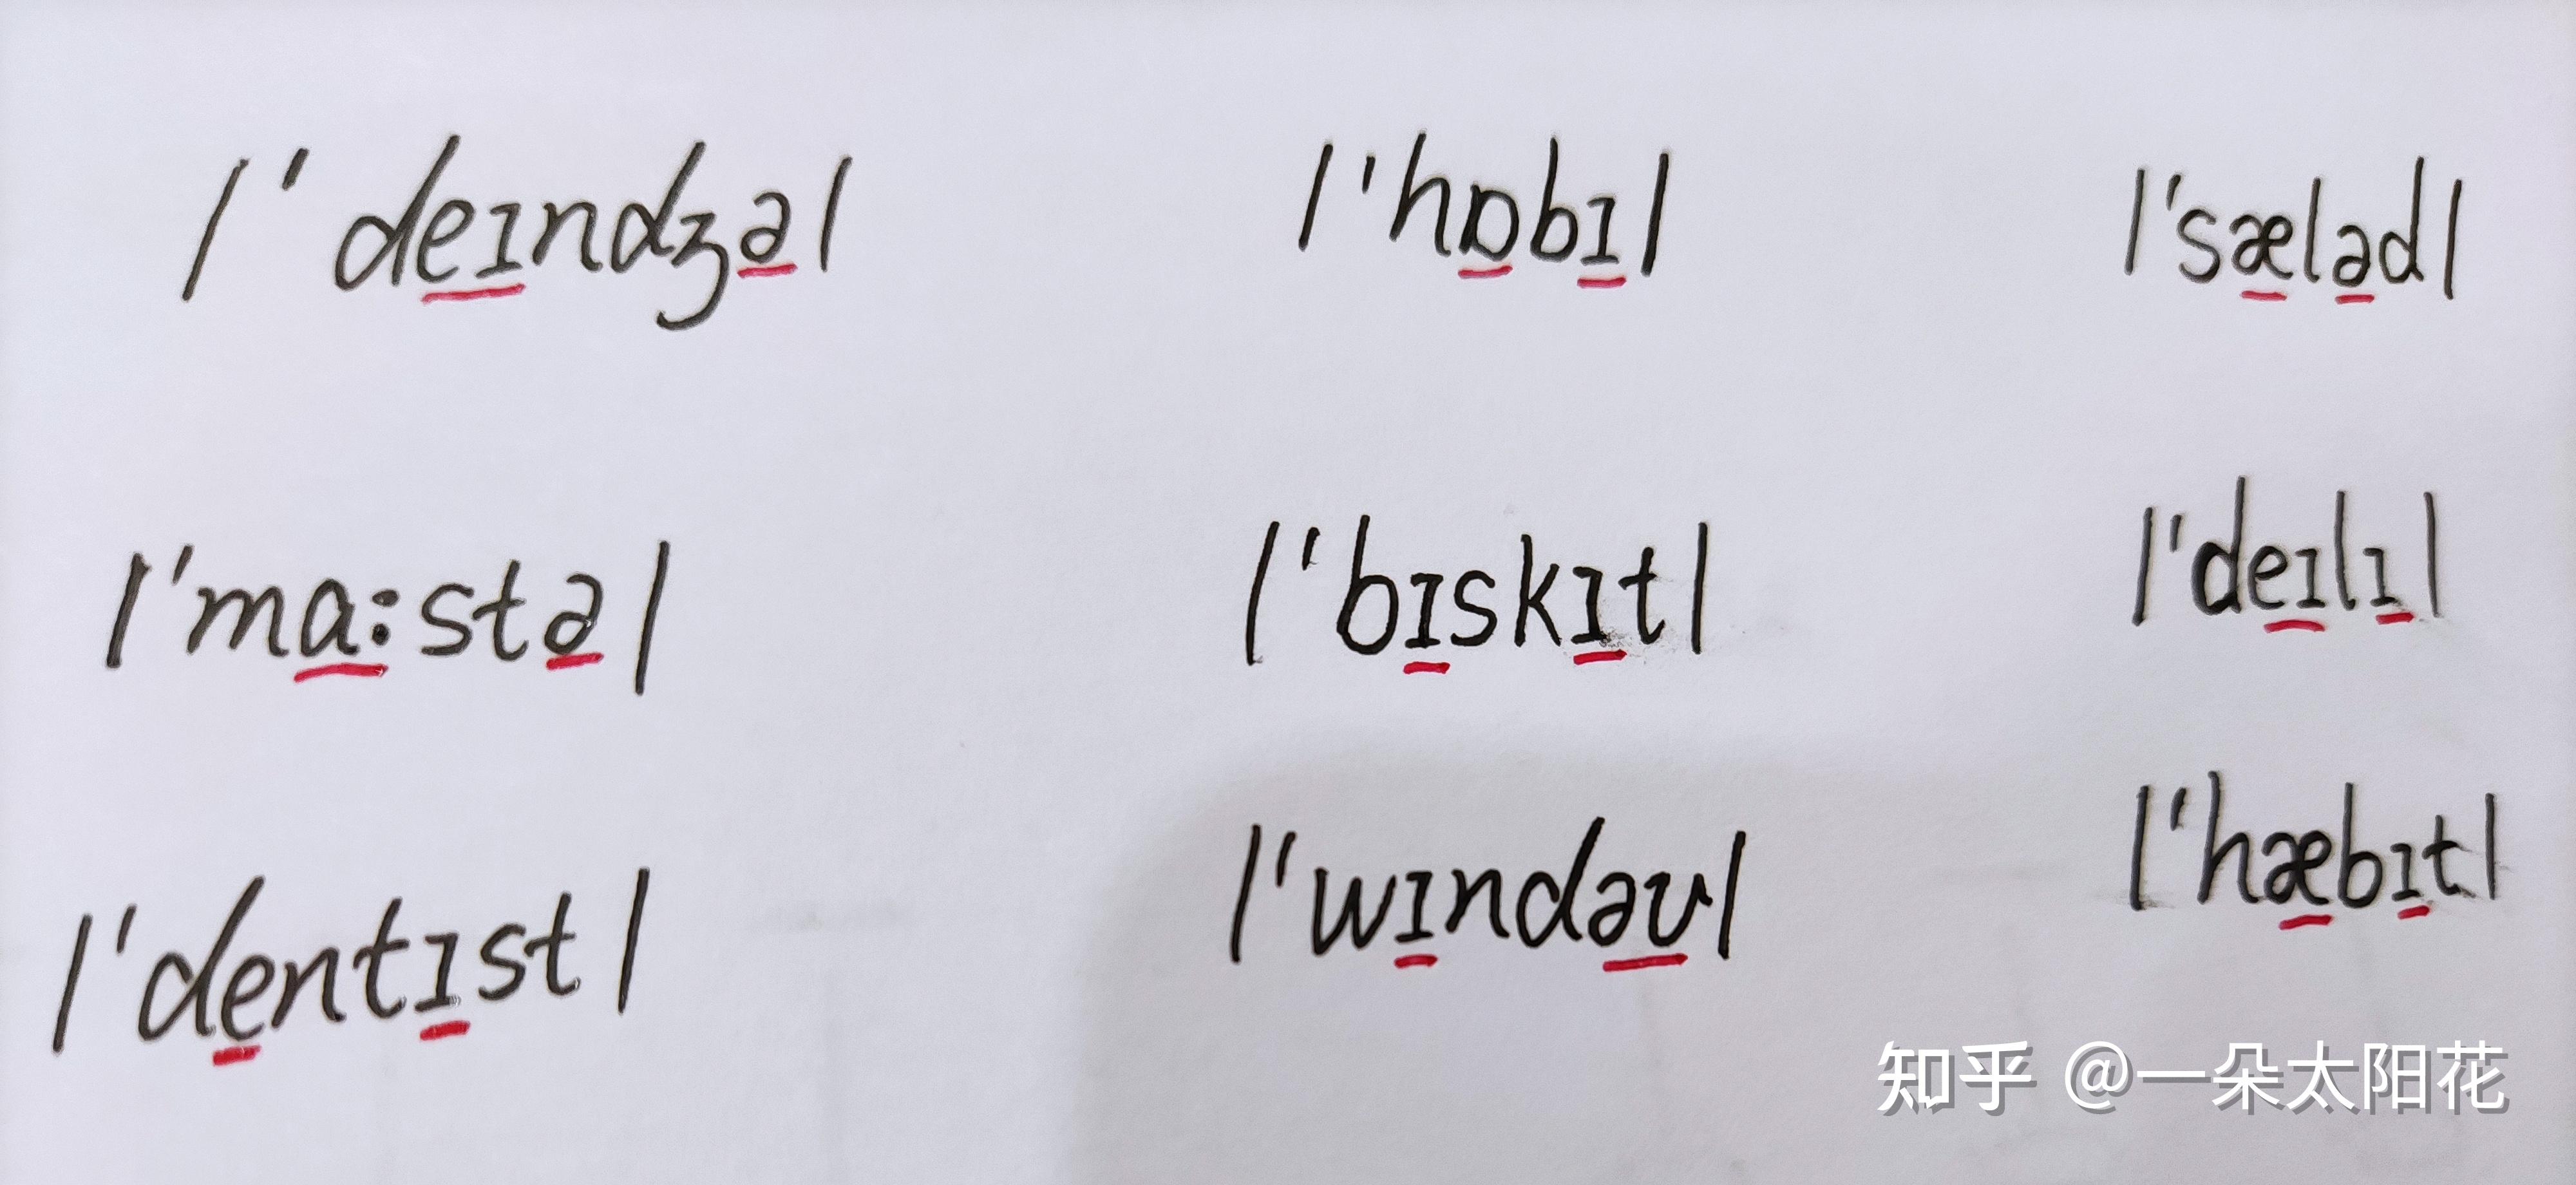 /'deɪndʒə/ /'hɒbɪ/ /'sæləd/
/'mɑ:stə/ /'bɪskɪt/ /'deɪlɪ/
/'dentɪst/ /'wɪndəʊ/ /'hæbɪt/
知乎 @一朵太阳花